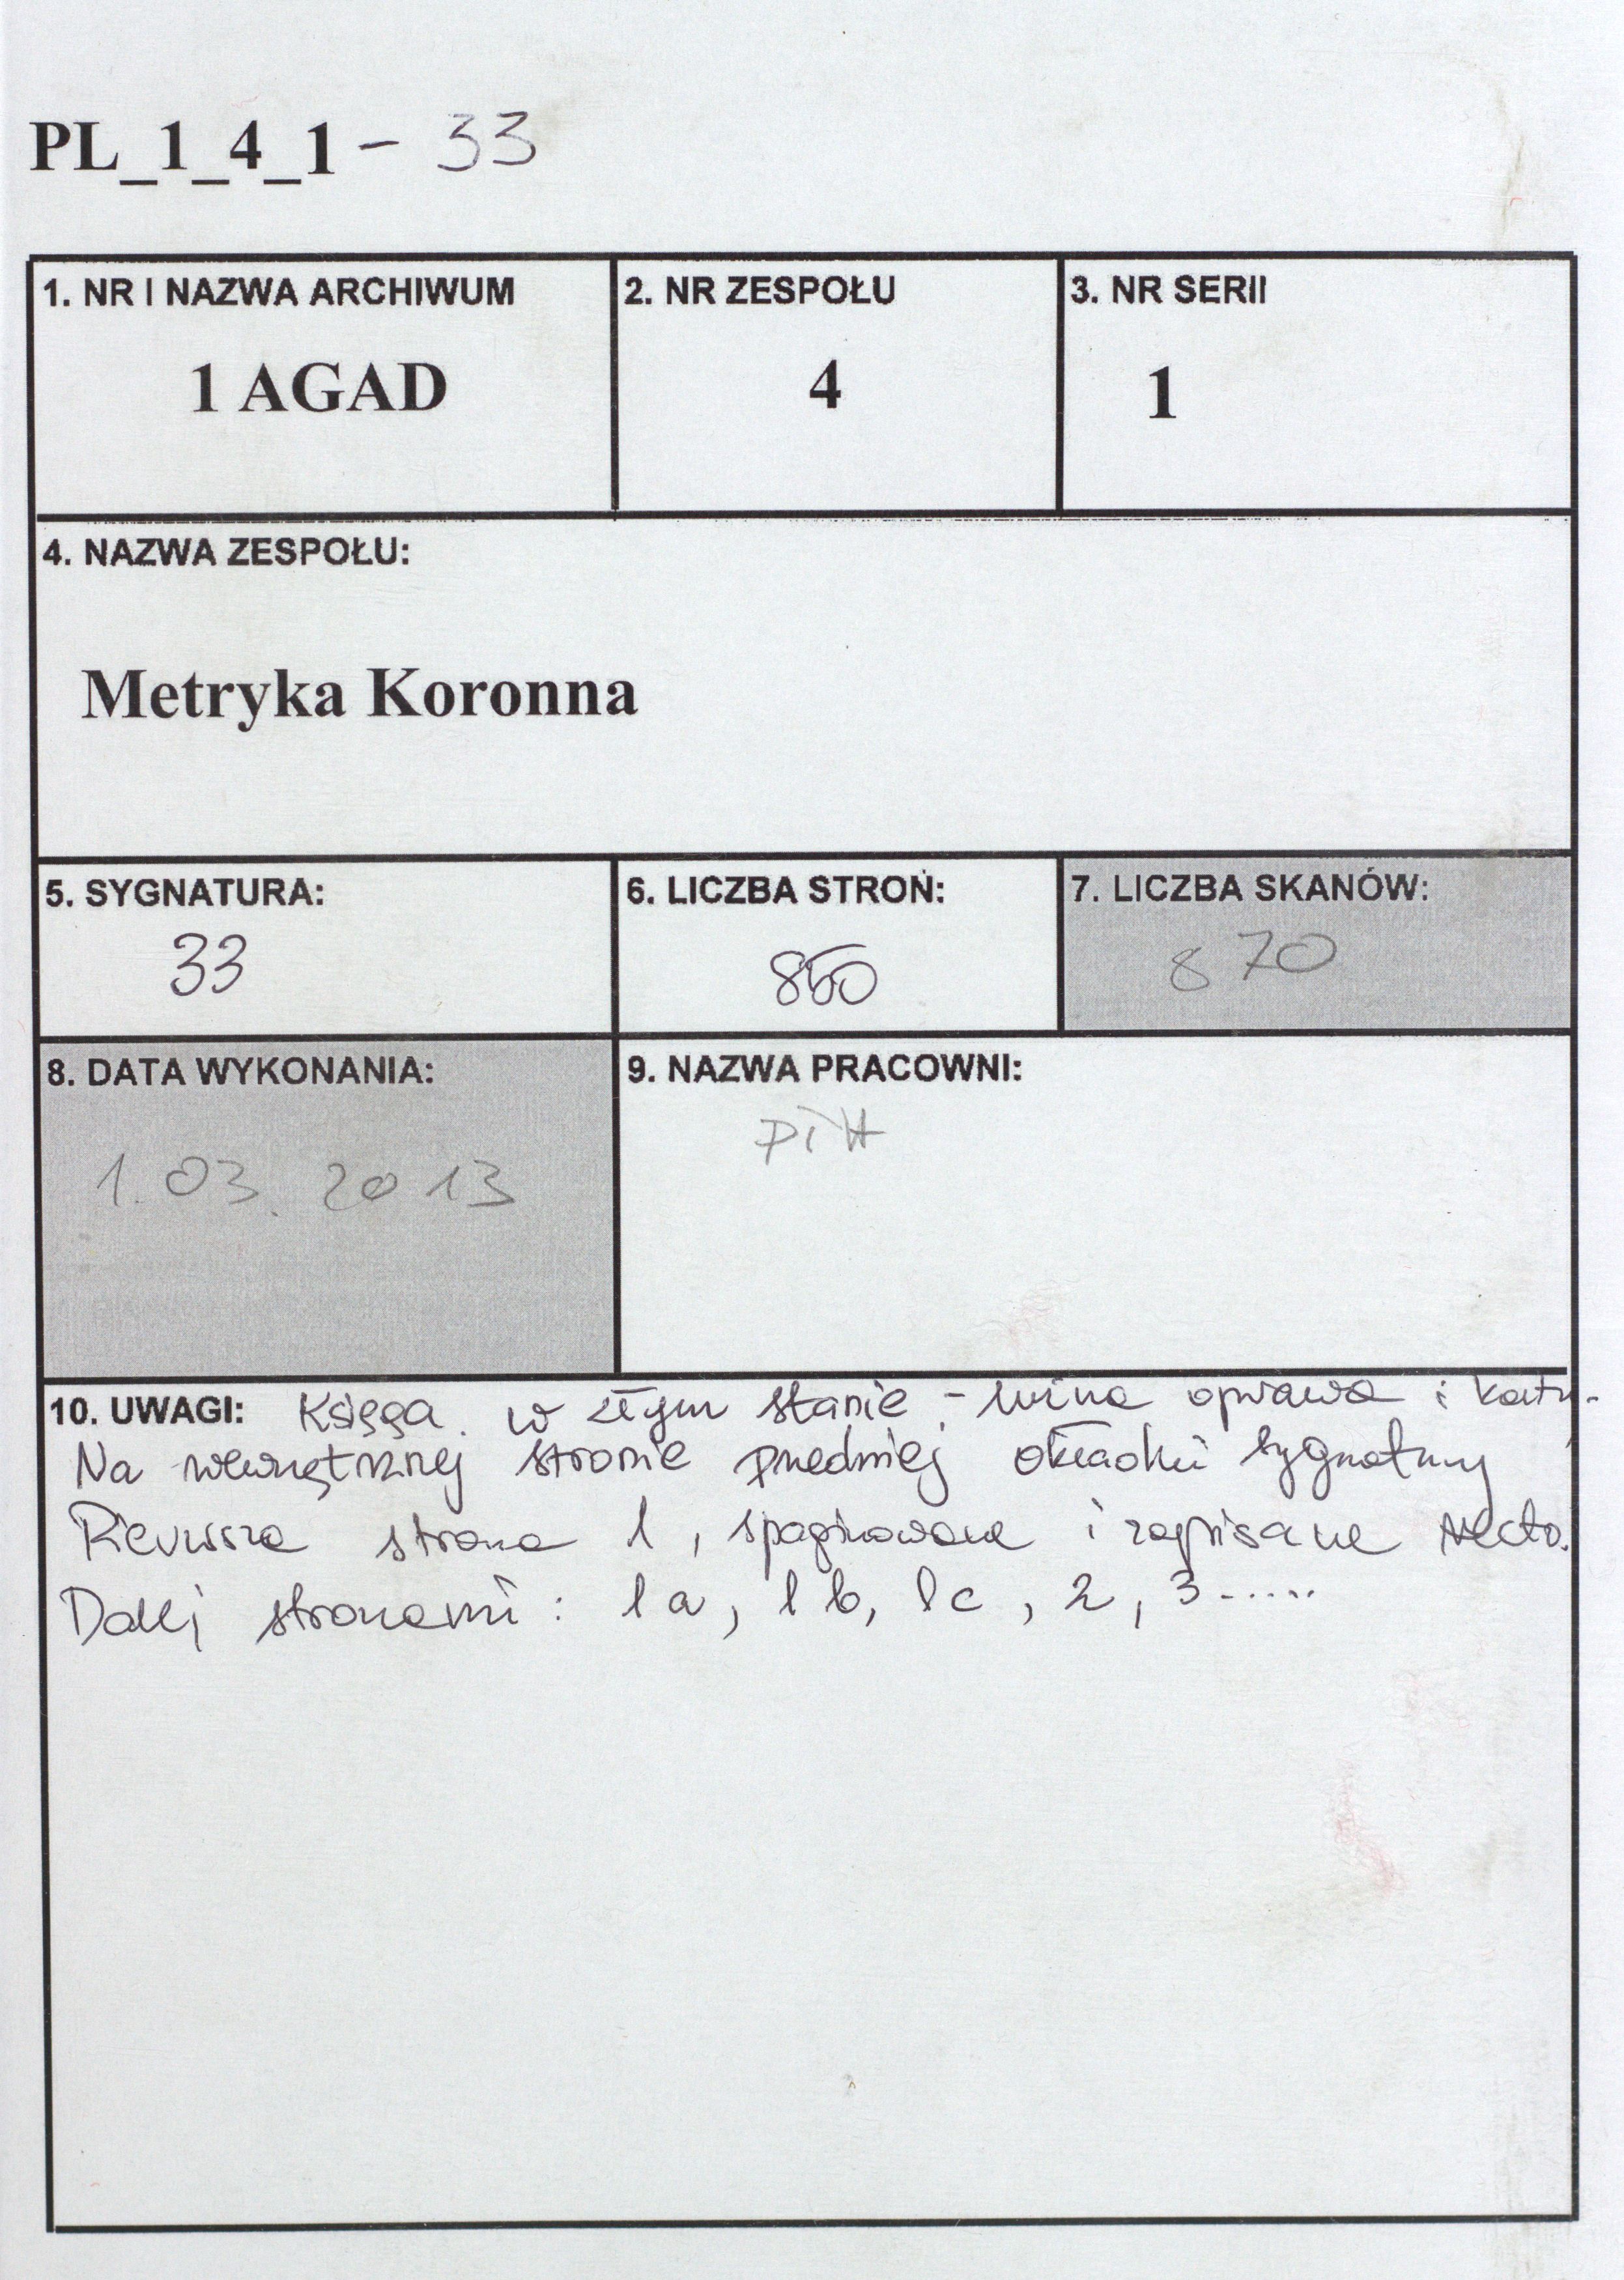 PL_1_4_1 - 33
1. NR I NAZWA ARCHIWUM
1 AGAD
2. NR ZESPOŁU
4
3. NR SERII
1
4. NAZWA ZESPOŁU:
Metryka Koronna
5. SYGNATURA:
33
6. LICZBA STRON:
850
7. LICZBA SKANÓW:
870
8. DATA WYKONANIA:
1.03.2013
9. NAZWA PRACOWNI:
10. UWAGI: Księga w złym stanie - luźna oprawa i karty.
Na wewnętrznej stronie przedniej okładki sygnatury
Pierwsza strona 1, spaginowana i zapisane recto.
Dalej stronami: 1a, 1b, 1c, 2, 3.....